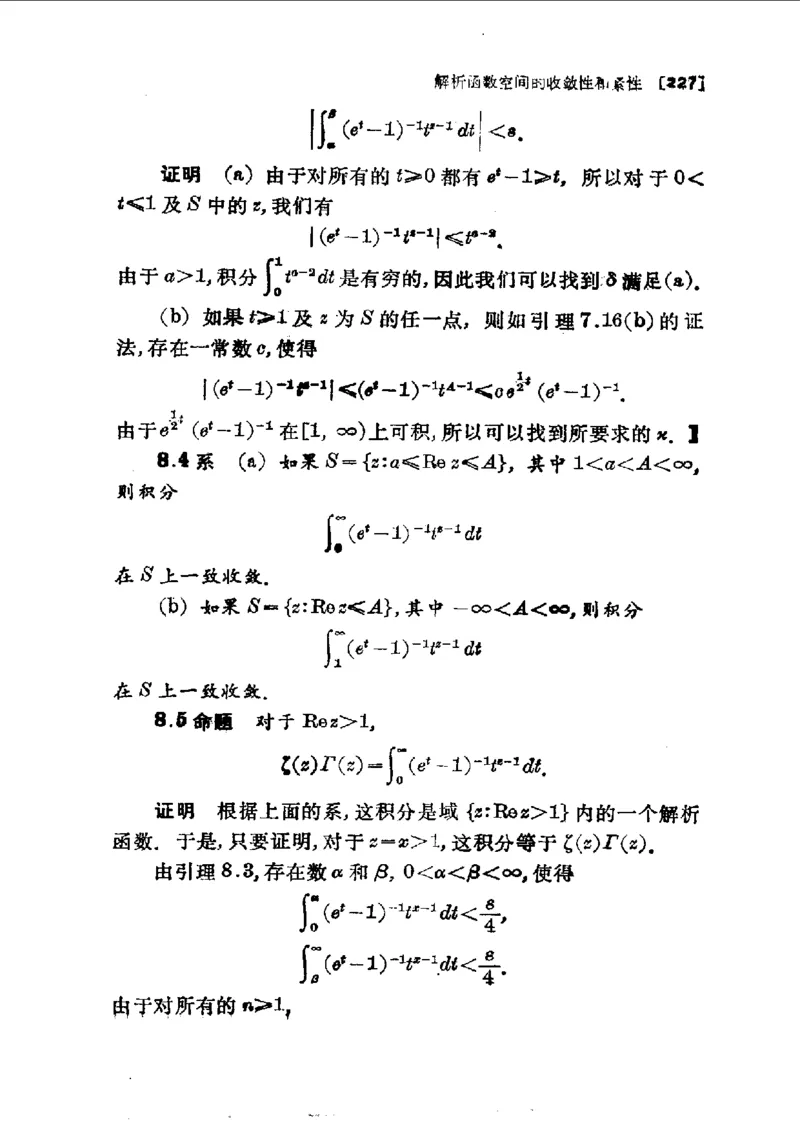 解析函数空间的收敛性和紧性 [227]
|∫_α^β (e^t−1)^{−1}t^{z−1} dt| <ε.
证明 (a) 由于对所有的 t⩾0 都有 e^t−1⩾t, 所以对于 0<
t⩽1 及 S 中的 z, 我们有
|(e^t−1)^{−1}t^{z−1}|⩽t^{a−2}.
由于 a>1, 积分 ∫_0^1 t^{a−2}dt 是有穷的, 因此我们可以找到 δ 满足(a).
(b) 如果 t⩾1 及 z 为 S 的任一点, 则如引理 7.16(b) 的证
法, 存在一常数 c, 使得
|(e^t−1)^{−1}t^{z−1}|⩽(e^t−1)^{−1}t^{A−1}⩽ce^{\frac{1}{2}t}(e^t−1)^{−1}.
由于e^{\frac{1}{2}t}(e^t−1)^{−1} 在[1, ∞)上可积, 所以可以找到所要求的 κ. 】
8.4 系 (a) 如果 S={z:a⩽Re z⩽A}, 其中 1<a<A<∞,
则积分
∫_0^∞ (e^t−1)^{−1}t^{z−1} dt
在 S 上一致收敛.
(b) 如果 S={z:Re z⩽A}, 其中 −∞<A<∞, 则积分
∫_1^∞ (e^t−1)^{−1}t^{z−1} dt
在 S 上一致收敛.
8.5 命题 对于 Re z>1,
ζ(z)Γ(z)=∫_0^∞ (e^t−1)^{−1}t^{z−1}dt.
证明 根据上面的系, 这积分是域 {z:Re z>1} 内的一个解析
函数. 于是, 只要证明, 对于 z=x>1, 这积分等于 ζ(z)Γ(z).
由引理 8.3, 存在数 α 和 β, 0<α<β<∞, 使得
∫_0^α (e^t−1)^{−1}t^{x−1} dt<\frac{ε}{4},
∫_β^∞ (e^t−1)^{−1}t^{x−1}dt<\frac{ε}{4}.
由于对所有的 n⩾1,